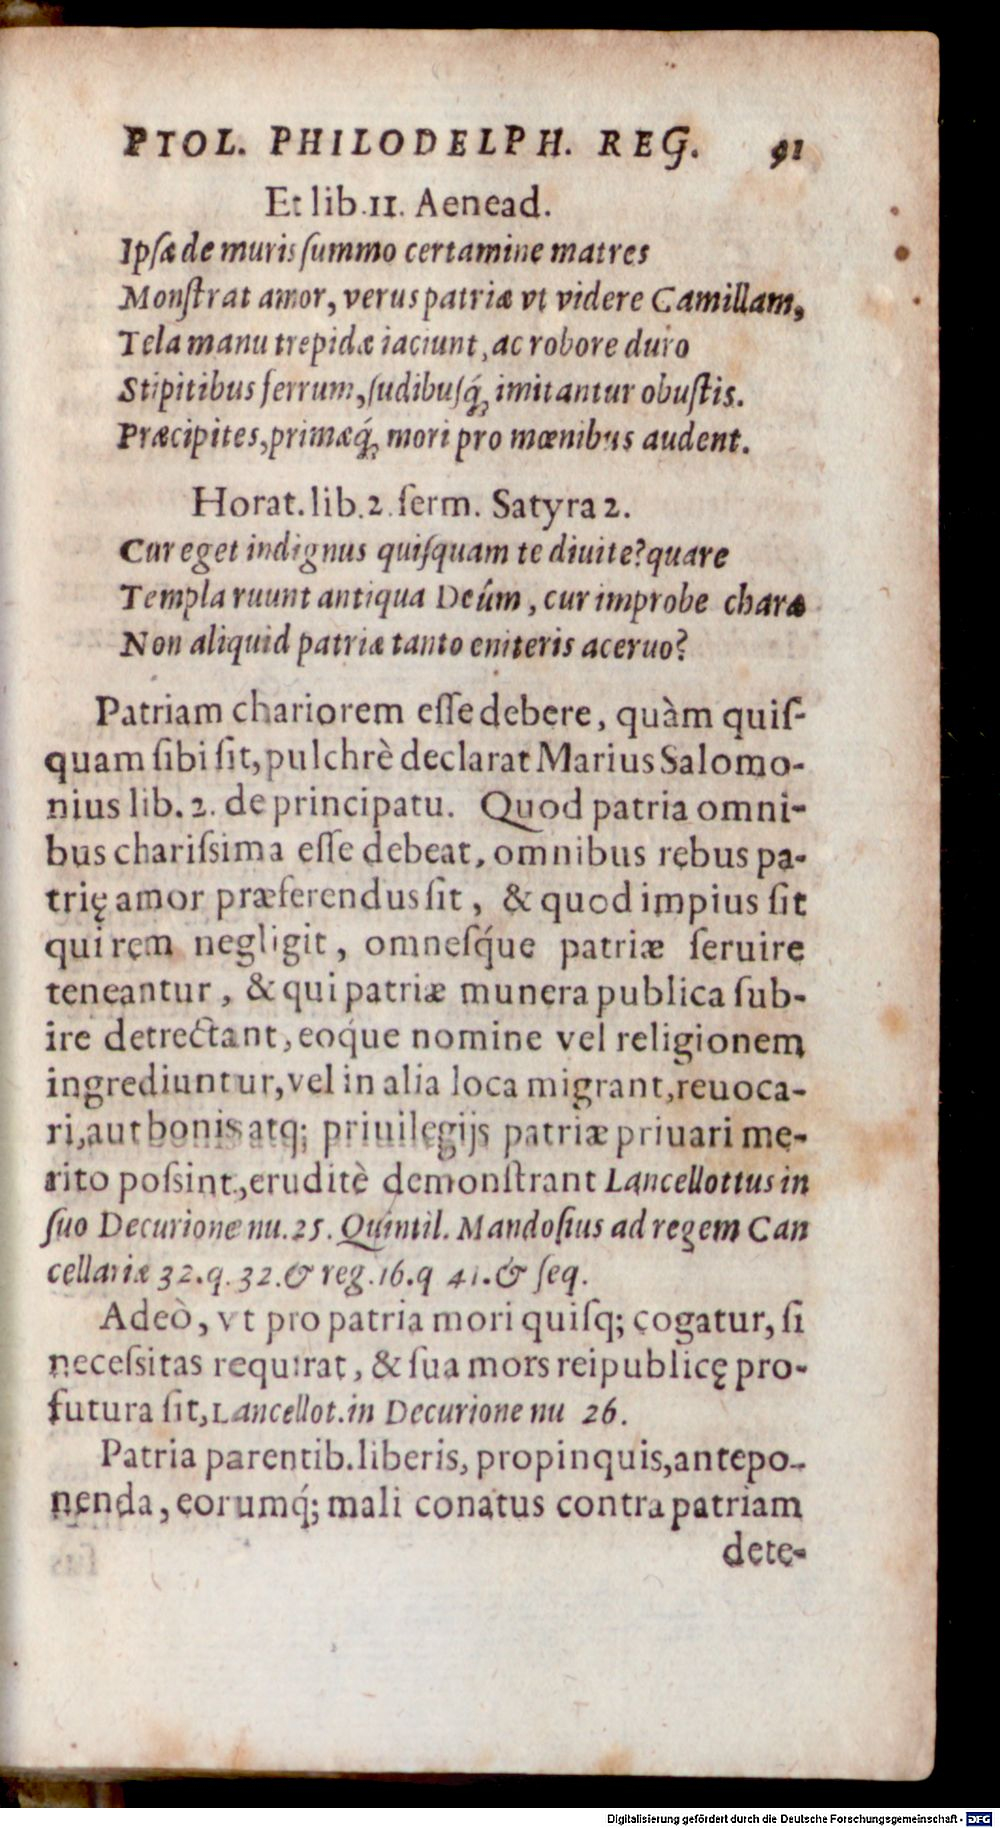 PTOL. PHILODELPH. REG. 91
Et lib.11. Aenead.
Ipsæ de muris ſummo certamine matres
Monſtrat amor, verus patriæ vt videre Camillam,
Tela manu trepidæ iaciunt, ac robore duro
Stipitibus ferrum, ſudibuſq́; imitantur obuſtis.
Præcipites, primæq́; mori pro mœnibus audent.
Horat. lib.2. ſerm. Satyra 2.
Cur eget indignus quiſquam te diuite? quare
Templa ruunt antiqua Deúm, cur improbe charæ
Non aliquid patriæ tanto eniteris aceruo?
Patriam chariorem eſſe debere, quàm quiſ-
quam ſibi ſit, pulchrè declarat Marius Salomo-
nius lib. 2. de principatu. Quod patria omni-
bus chariſsima eſſe debeat, omnibus rebus pa-
trię amor præferendus ſit, & quod impius ſit
qui rem negligit, omneſq́ue patriæ ſeruire
teneantur, & qui patriæ munera publica ſub-
ire detrectant, eoq́ue nomine vel religionem
ingrediuntur, vel in alia loca migrant, reuoca-
ri, aut bonis atq; priuilegijs patriæ priuari me-
rito poſsint, eruditè demonſtrant Lancellottus in
ſuo Decurione nu. 25. Quintil. Mandoſius ad regem Can
cellariæ 32.q. 32. & reg.16.q 41. & ſeq.
Adeò, vt pro patria mori quiſq; cogatur, ſi
neceſsitas requirat, & ſua mors reipublicę pro-
futura ſit, Lancellot. in Decurione nu 26.
Patria parentib. liberis, propinquis, antepo-
nenda, eorumq́; mali conatus contra patriam
dete-
Digitalisierung gefördert durch die Deutsche Forschungsgemeinschaft - DFG